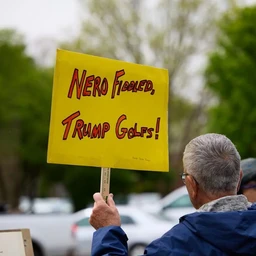 Nero Fiddled,
Trump Golfs!